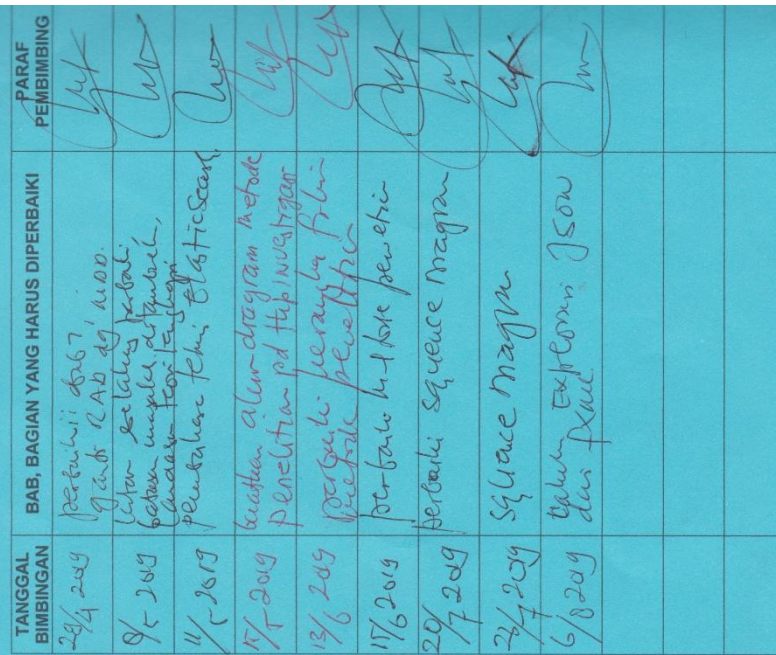 TANGGAL BIMBINGAN
BAB, BAGIAN YANG HARUS DIPERBAIKI
PARAF PEMBIMBING
29/4 2019
perbaiki bab 1
ganti RAD dg
9/5 2019
latar belakang perbaiki
batasan masalah
landasan teori
11/5 2019
pembahasan ElasticSearch
15/5 2019
buatkan alur diagram metode
penelitian pd investigasi
13/6 2019
perbaiki
metode penelitian
15/6 2019
perbaiki metode penelitian
20/7 2019
perbaiki squence diagram
22/7 2019
squence diagram
6/8 2019
JSON
dari